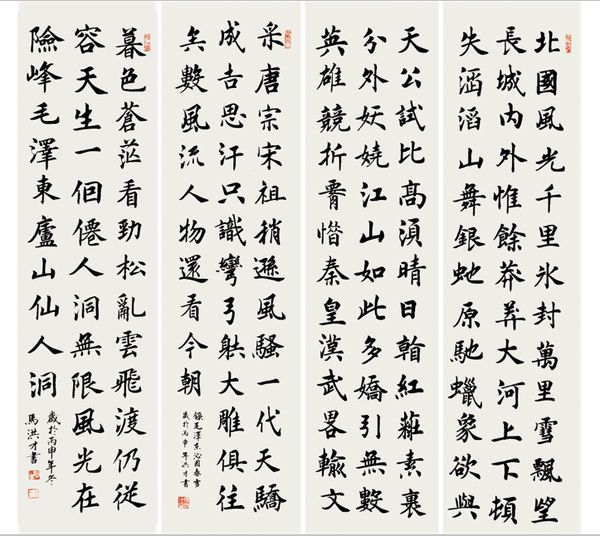 北國風光千里氷封萬里雪飄望
長城内外惟餘莽莽大河上下頓
失滔滔山舞銀虵原馳蠟象欲與
天公試比髙湏晴日翰紅素裹
分外妖嬈江山如此多嬌引無數
英雄競折惜秦皇漢武畧輸文
采唐宗宋祖稍遜風騷一代天驕
成吉思汗只識彎弓躲大雕俱往
矣數風流人物還看今朝
錄毛澤东沁園春雪
歲於丙申年洪才書
暮色蒼茫看勁松亂雲飛渡仍從
容天生一個僊人洞無限風光在
險峰毛澤東廬山仙人洞
歲於丙申年冬
馬洪才書